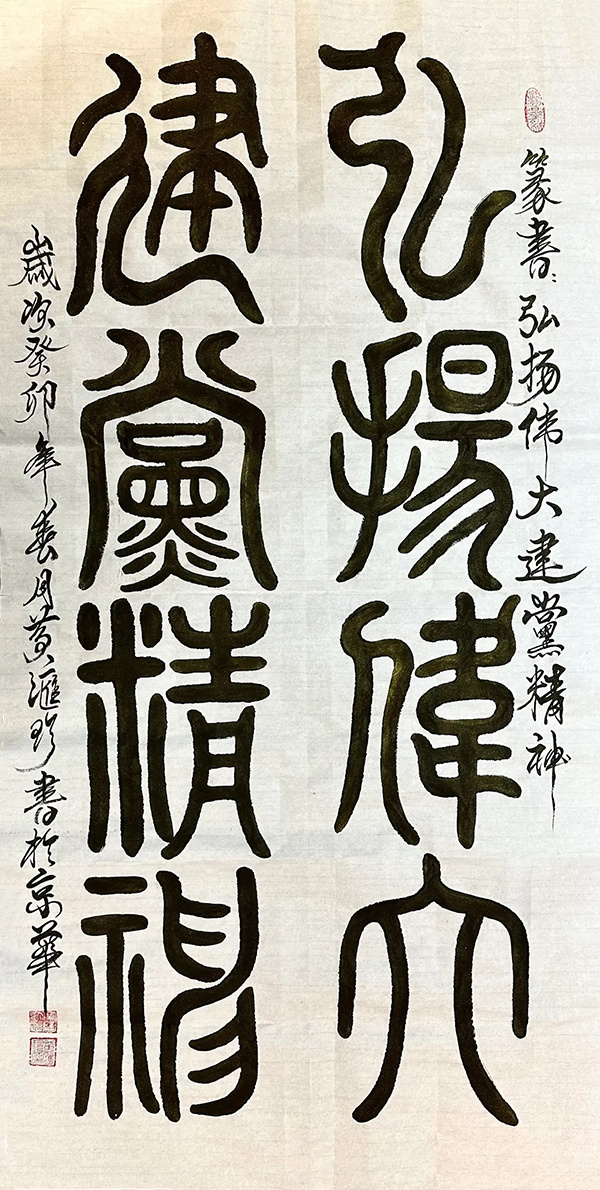 篆書：弘揚伟大建黨精神
弘揚偉大
建黨精神
歲次癸卯年春月黄滙珍書於京華